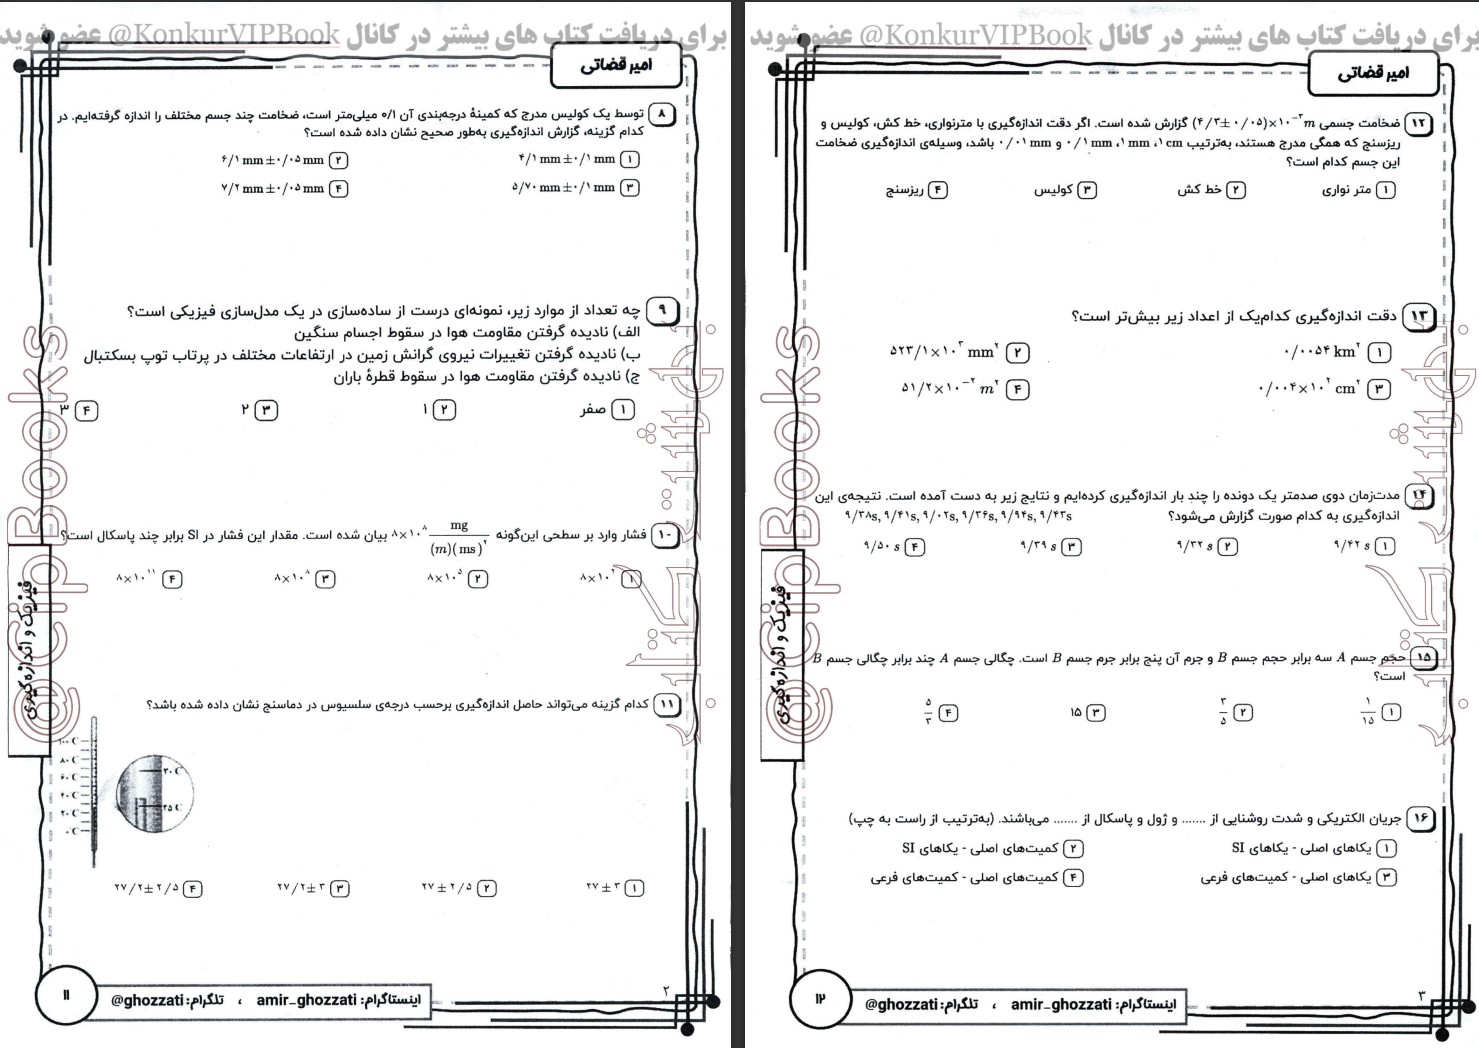 برای دریافت کتاب های بیشتر در کانال @KonkurVIPBook عضو شوید
امیر قضاتی
۱۲ ضخامت جسمی (۴/۳±۰/۰۵)×۱۰⁻³m گزارش شده است. اگر دقت اندازه‌گیری با مترنواری، خط کش، کولیس و
ریزسنج که همگی مدرج هستند، به‌ترتیب ۱ cm، ۱ mm، ۰/۱ mm و ۰/۰۱ mm باشد، وسیله‌ی اندازه‌گیری ضخامت
این جسم کدام است؟
۱ متر نواری ۲ خط کش ۳ کولیس ۴ ریزسنج
۱۳ دقت اندازه‌گیری کدام‌یک از اعداد زیر بیش‌تر است؟
۱ ۰/۰۰۵۴ km² ۲ ۵۲۳/۱×۱۰³ mm²
۳ ۰/۰۰۴×۱۰² cm² ۴ ۵۱/۲×۱۰⁻² m²
۱۴ مدت‌زمان دوی صدمتر یک دونده را چند بار اندازه‌گیری کرده‌ایم و نتایج زیر به دست آمده است. نتیجه‌ی این
اندازه‌گیری به کدام صورت گزارش می‌شود؟ ۹/۳۸s, ۹/۴۱s, ۹/۰۲s, ۹/۳۶s, ۹/۹۴s, ۹/۴۳s
۱ ۹/۴۲ s ۲ ۹/۳۲ s ۳ ۹/۳۹ s ۴ ۹/۵۰ s
۱۵ حجم جسم A سه برابر حجم جسم B و جرم آن پنج برابر جرم جسم B است. چگالی جسم A چند برابر چگالی جسم B
است؟
۱ ۱/۱۵ ۲ ۳/۵ ۳ ۱۵ ۴ ۵/۳
۱۶ جریان الکتریکی و شدت روشنایی از ....... و ژول و پاسکال از ....... می‌باشند. (به‌ترتیب از راست به چپ)
۱ یکاهای اصلی - یکاهای SI ۲ کمیت‌های اصلی - یکاهای SI
۳ یکاهای اصلی - کمیت‌های فرعی ۴ کمیت‌های اصلی - کمیت‌های فرعی
فیزیک و اندازه‌گیری
۳
اینستاگرام: amir_ghozzati ، تلگرام: @ghozzati
۱۲
برای دریافت کتاب های بیشتر در کانال @KonkurVIPBook عضو شوید
امیر قضاتی
۸ توسط یک کولیس مدرج که کمینهٔ درجه‌بندی آن ۰/۱ میلی‌متر است، ضخامت چند جسم مختلف را اندازه گرفته‌ایم. در
کدام گزینه، گزارش اندازه‌گیری به‌طور صحیح نشان داده شده است؟
۱ ۴/۱ mm ±۰/۱ mm ۲ ۶/۱ mm ±۰/۰۵ mm
۳ ۵/۷۰ mm ±۰/۱ mm ۴ ۷/۲ mm ±۰/۰۵ mm
۹ چه تعداد از موارد زیر، نمونه‌ای درست از ساده‌سازی در یک مدل‌سازی فیزیکی است؟
الف) نادیده گرفتن مقاومت هوا در سقوط اجسام سنگین
ب) نادیده گرفتن تغییرات نیروی گرانش زمین در ارتفاعات مختلف در پرتاب توپ بسکتبال
ج) نادیده گرفتن مقاومت هوا در سقوط قطرهٔ باران
۱ صفر ۲ ۱ ۳ ۲ ۴ ۳
۱۰ فشار وارد بر سطحی این‌گونه ۸×۱۰⁸ mg/(m)(ms)² بیان شده است. مقدار این فشار در SI برابر چند پاسکال است؟
۱ ۸×۱۰² ۲ ۸×۱۰⁵ ۳ ۸×۱۰⁸ ۴ ۸×۱۰¹¹
۱۱ کدام گزینه می‌تواند حاصل اندازه‌گیری برحسب درجه‌ی سلسیوس در دماسنج نشان داده شده باشد؟
۱۰۰ C
۸۰ C
۶۰ C
۴۰ C
۲۰ C
۰ C
۳۰ C
۲۵ C
۱ ۲۷±۳ ۲ ۲۷±۲/۵ ۳ ۲۷/۲±۳ ۴ ۲۷/۲±۲/۵
فیزیک و اندازه‌گیری
۲
اینستاگرام: amir_ghozzati ، تلگرام: @ghozzati
۱۱
@Clip Books